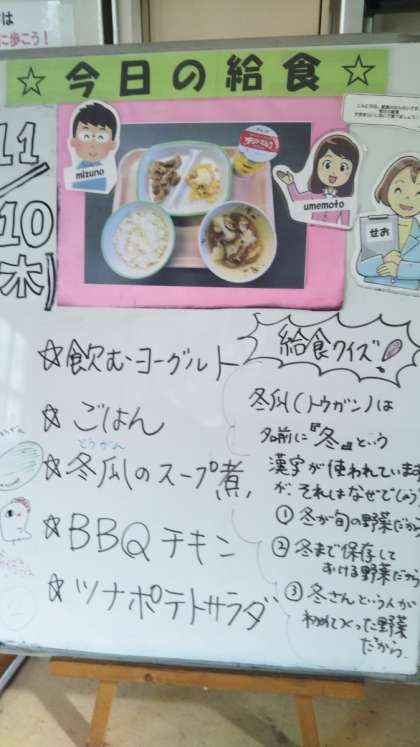 に歩こう!
☆今日の給食☆
11/10(木)
mizuno
umemoto
せお
☆飲むヨーグルト
☆ごはん
とうがん
☆冬瓜のスープ煮
☆BBQチキン
☆ツナポテトサラダ
給食クイズ!
冬瓜(トウガン)は
名前に『冬』という
漢字が使われていま
が、それはなぜで
① 冬が旬の野菜だから
② 冬まで保存して
おける野菜だから
③ 冬さんという人が
初めてつくった野菜
だから.